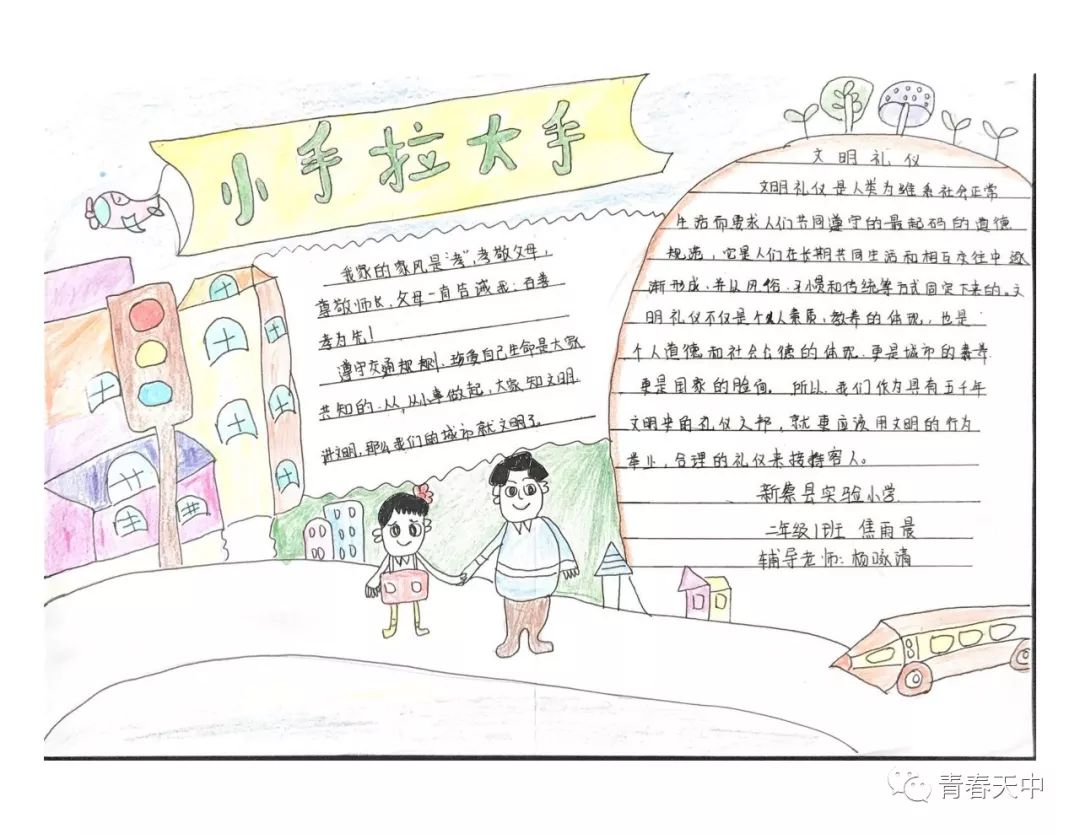 小手拉大手
我家的家风是“孝”,孝敬父母,
尊敬师长,父母一直告诫我:百善
孝为先!
遵守交通规则、珍爱自己生命是大家
共知的.从从小事做起,大家知文明
讲文明,那么我们的城市就文明了
文明礼仪
文明礼仪是人类为维系社会正常
生活而要求人们共同遵守的最起码的道德
规范,它是人们在长期共同生活和相互交往中逐
渐形成,并以风俗、习惯和传统等方式固定下来的。文
明礼仪不仅是个人素质、教养的体现,也是
个人道德和社会公德的体现.更是城市的素养
更是国家的脸面。所以,我们作为具有五千年
文明史的礼仪之邦,就更应该用文明的行为
举止,合理的礼仪来接待客人。
新蔡县实验小学
二年级1班 焦雨晨
辅导老师:杨咏清
青春天中